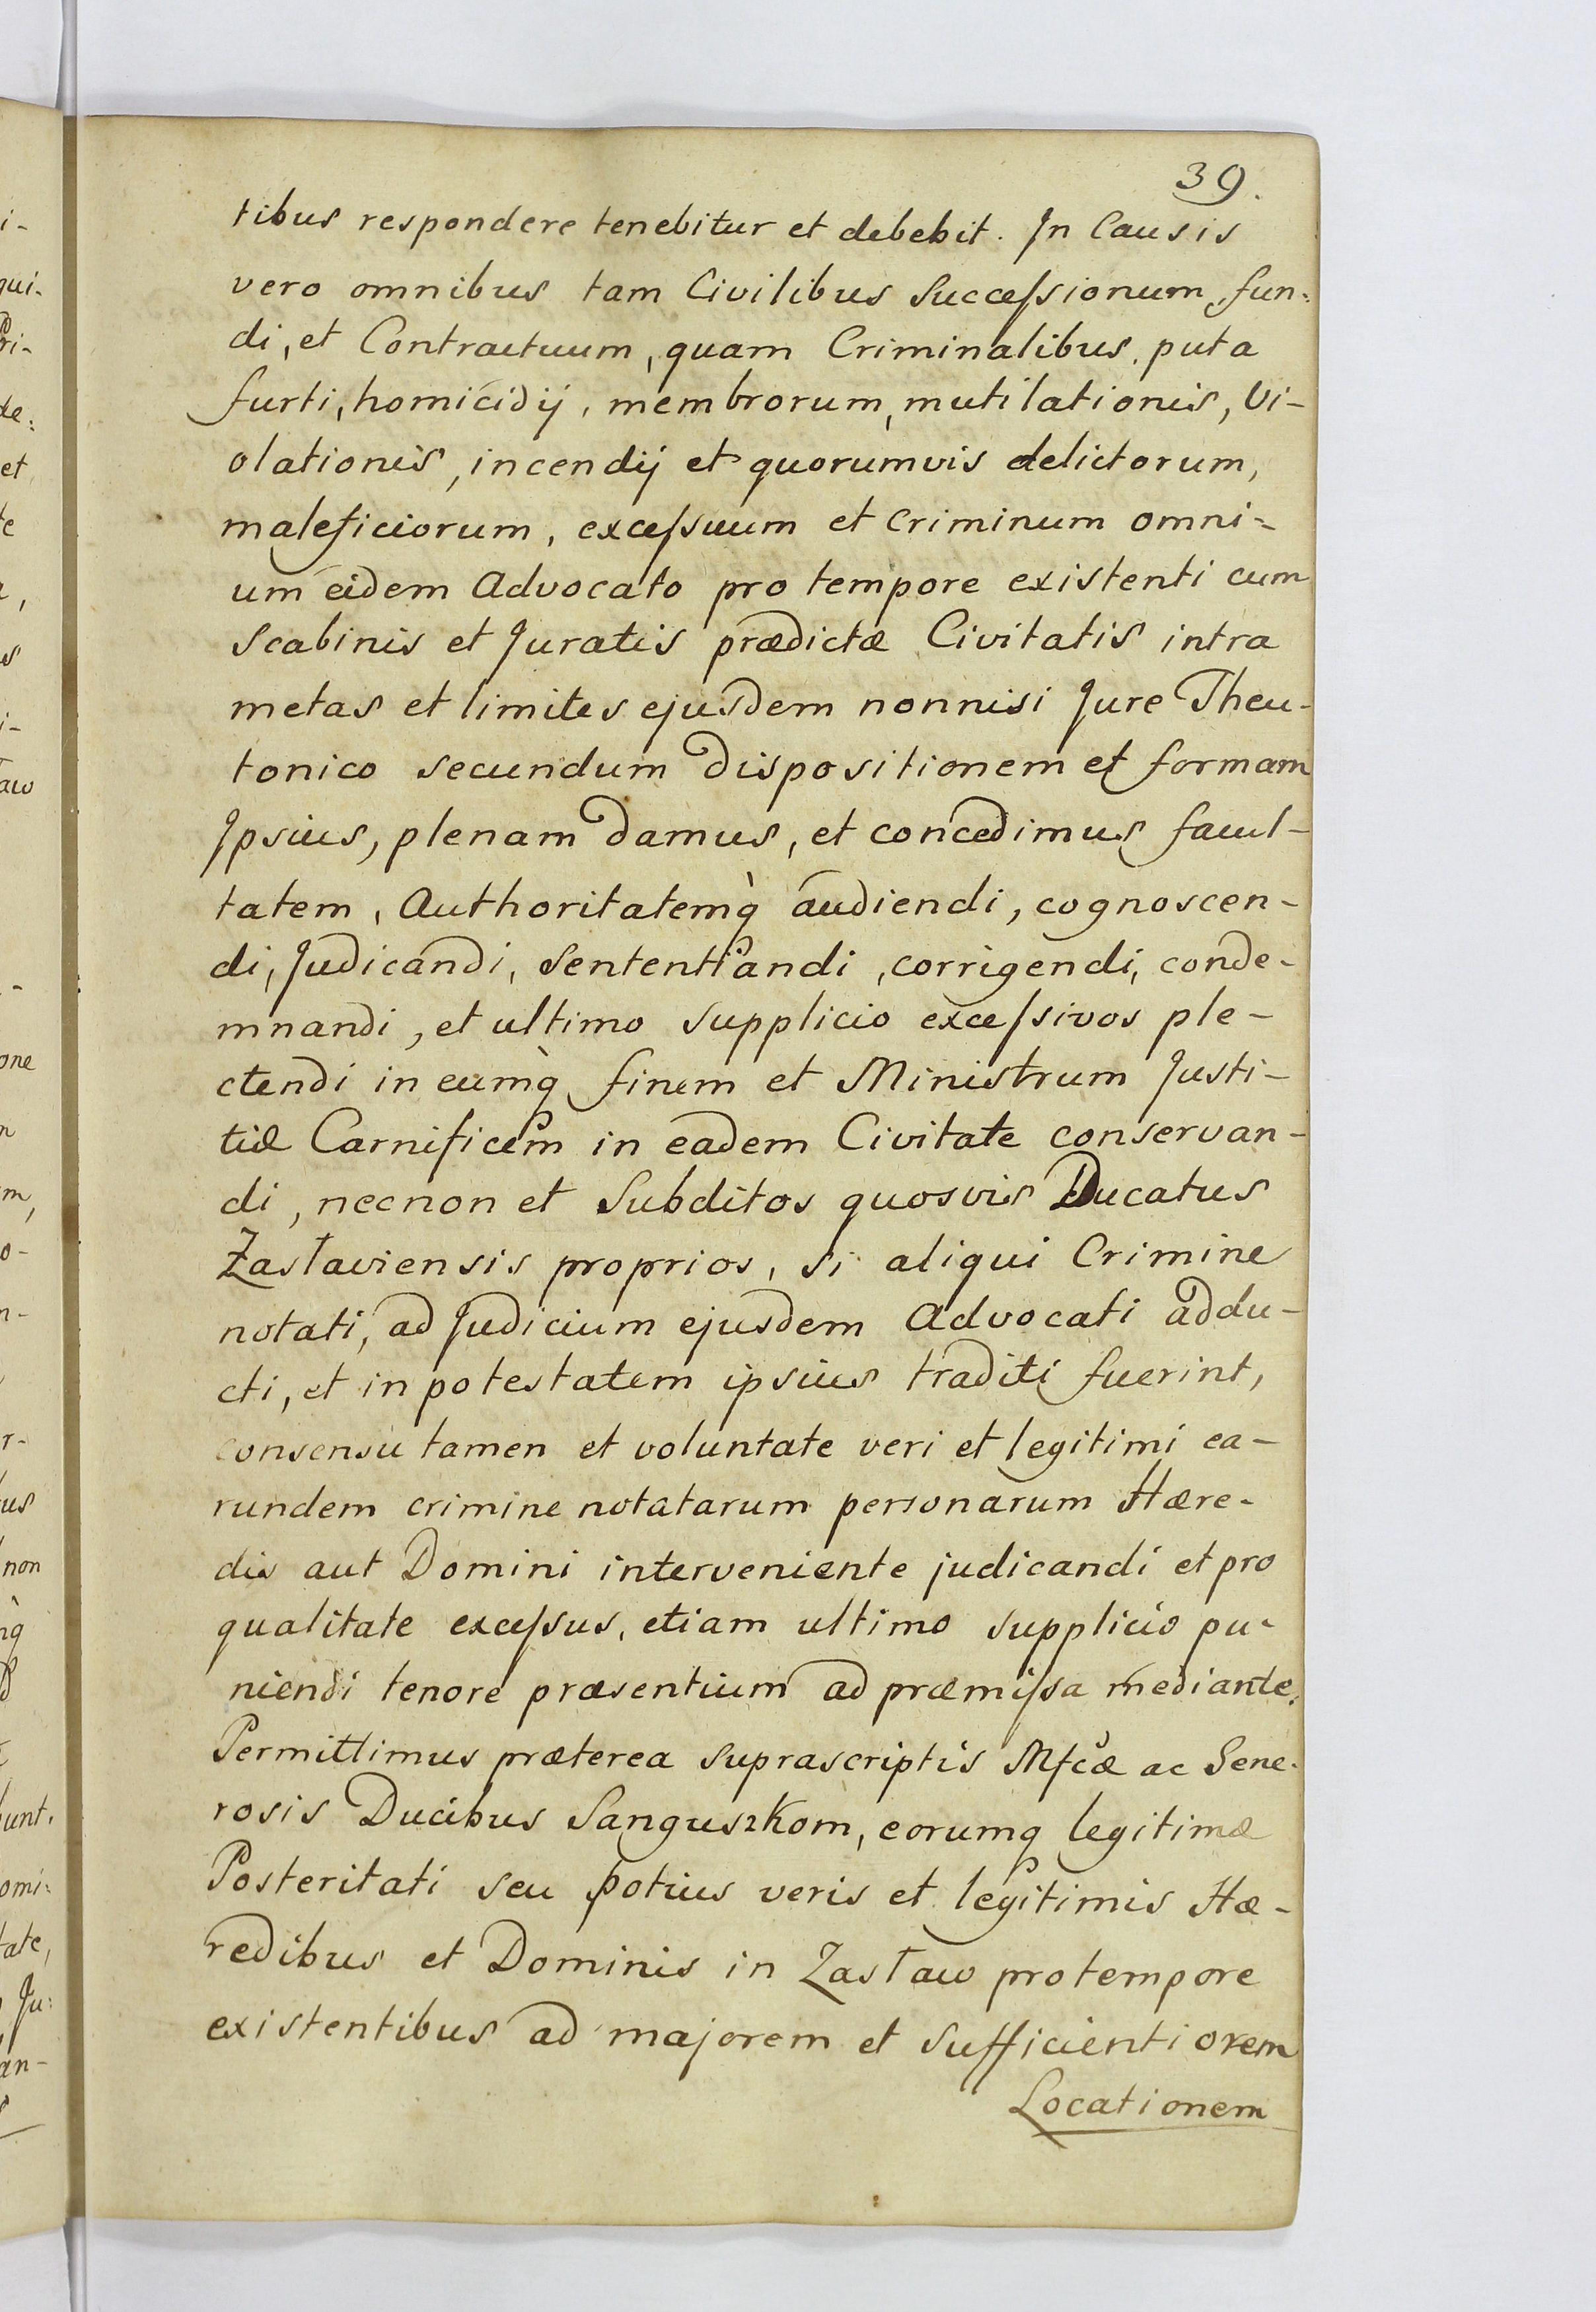 39.
tibus respondere tenebitur et debebit. In Causis
vero omnibus tam Civilibus Succeſsionum, fun:
di, et Contractuum, quam Criminalibus, puta
furti, homicidij, membrorum, mutilationis, Vi-
olationis, incendij et quorumvis delictorum,
maleficiorum, exceſsuum et Criminum omni-
um eidem Advocato pro tempore existenti cum
Scabinis et Juratis prædictæ Civitatis intra
metas et limites ejusdem nonnisi Jure Theu-
tonico secundum dispositionem et formam
Ipsius, plenam damus, et concedimus facul-
tatem, Authoritatemq̀ audiendi, cognoscen-
di, Judicandi, Sententiandi, corrigendi, conde-
mnandi, et ultimo Supplicio exceſsivos ple-
ctendi in eumq̀ finem et Ministrum Justi-
tiæ Carnificem in eadem Civitate conservan-
di, necnon et Subditos quosvis Ducatus
Zasłaviensis proprios, si aliqui Crimine
notati, ad Judicium ejusdem Advocati addu-
cti, et in potestatem ipsius traditi fuerint,
consensu tamen et voluntate veri et legitimi ea-
rundem crimine notatarum personarum Hære-
dis aut Domini interveniente judicandi et pro
qualitate exceſsus, etiam ultimo supplicio pu-
niendi tenore præsentium ad præmiſsa mediante.
Permittimus præterea suprascriptis Mfcæ ac Gene-
rosis Ducibus Sanguszkom, eorumq legitimæ
Posteritati seu potius veris et legitimis Hæ-
redibus et Dominis in Zasław pro tempore
existentibus ad majorem et Sufficientiorem
Locationem